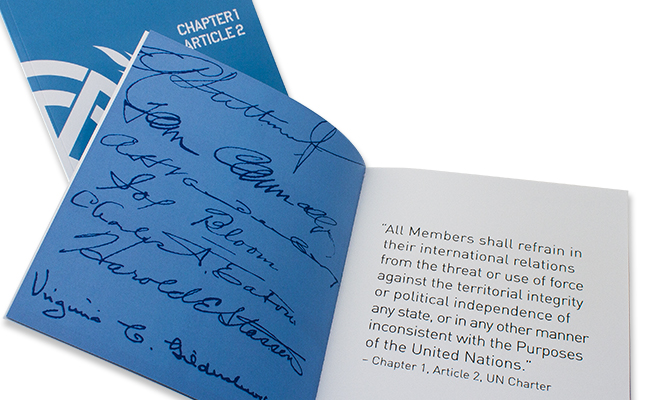 CHAPTER 1
ARTICLE 2
ERStettiniusJr
Tom Connally
AHVandenberg
Sol Bloom
Charles A. Eaton
Harold E Stassen
Virginia C. Gildersleeve
"All Members shall refrain in
their international relations
from the threat or use of force
against the territorial integrity
or political independence of
any state, or in any other manner
inconsistent with the Purposes
of the United Nations."
– Chapter 1, Article 2, UN Charter